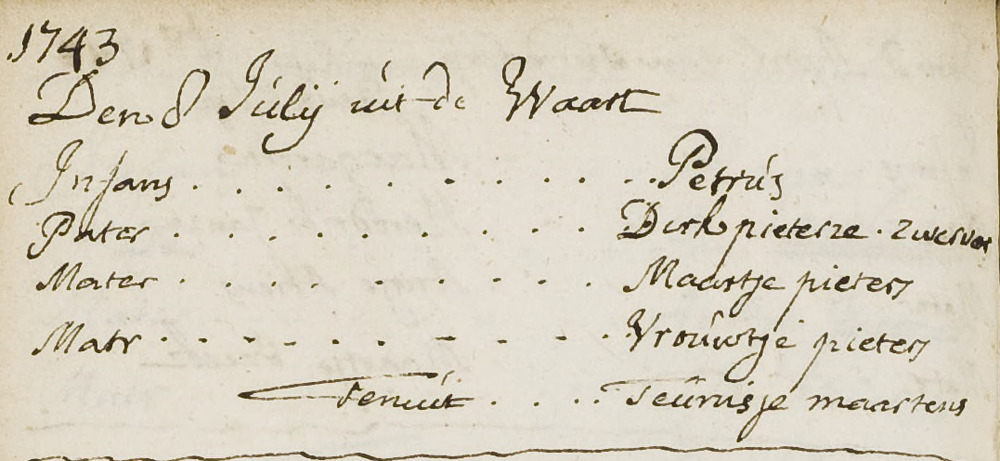 1743
Den 8 Julij uit de Waart
Infans . . . . . . . . . . . . Petrus
Pater . . . . . . . . . . Dirk pieterze . Zwerver
Mater . . . . . . . . . . Maartje pieters
Matr . . . . . . . . . . Vrouwtje pieters
Tenuit . . . . Teunisje maartens